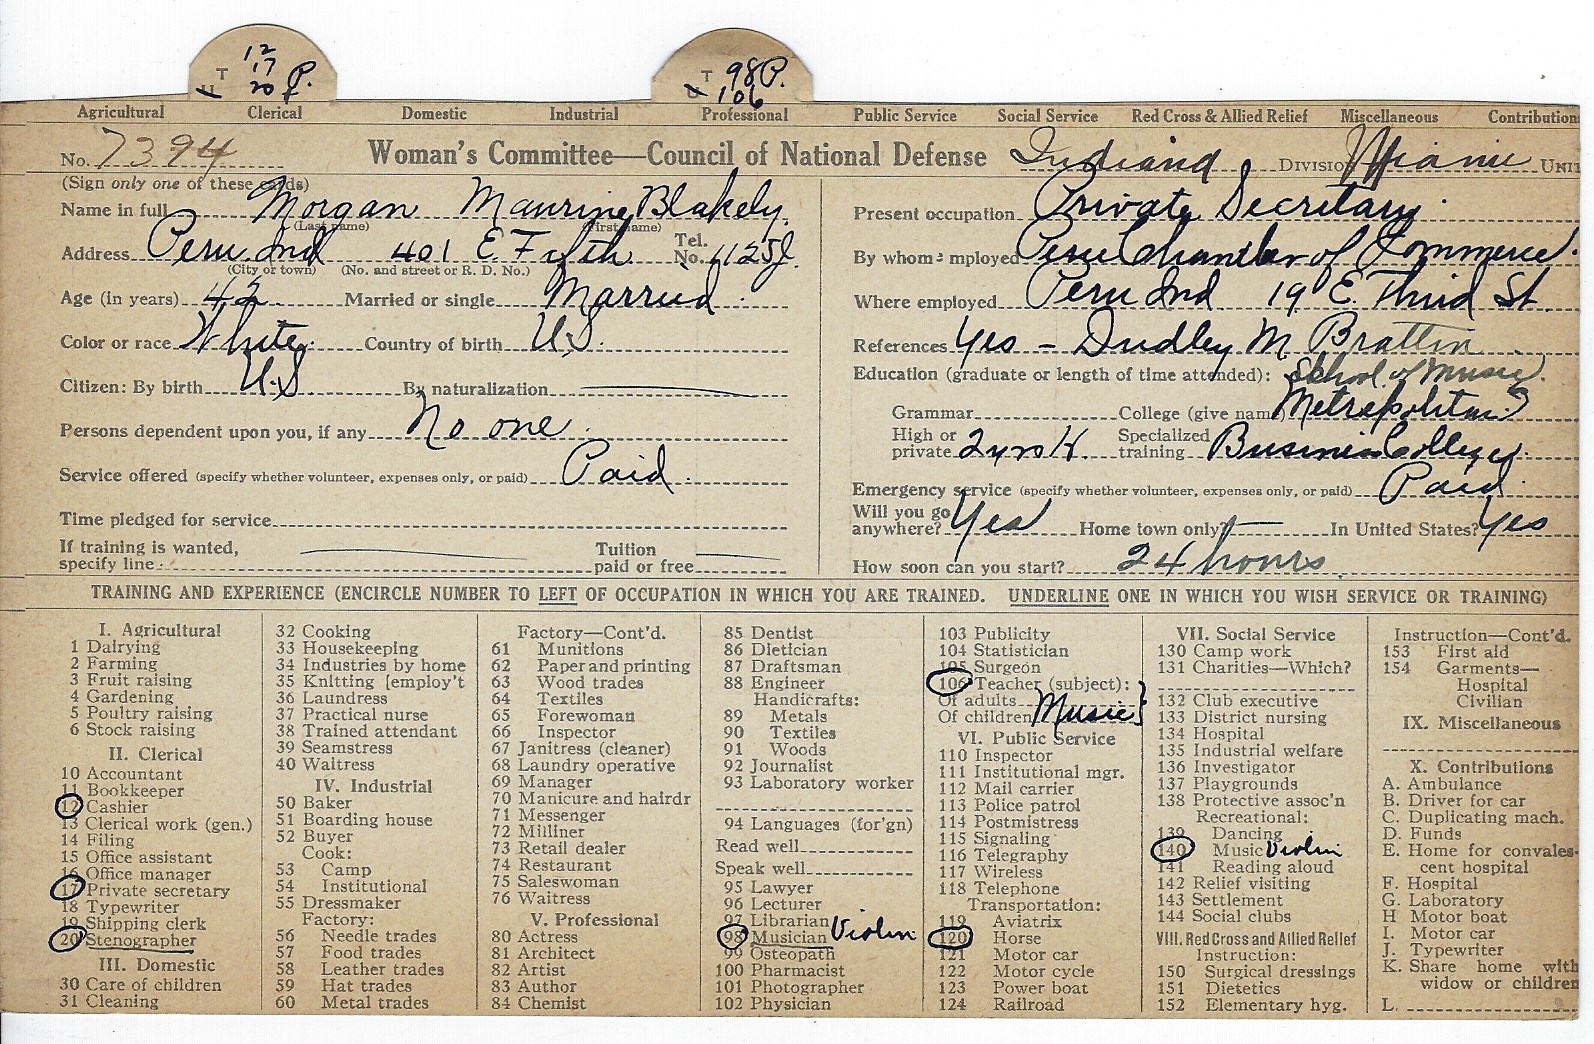 12
T 17 P.
U 20
T 98 P.
U 106
Agricultural Clerical Domestic Industrial Professional Public Service Social Service Red Cross & Allied Relief Miscellaneous Contributions
No. 7394 Woman's Committee—Council of National Defense Indiana DIVISION Miami UNIT
(Sign only one of these cards)
Name in full Morgan Maurine Blakely
(Last name) (First name)
Address Peru Ind 401 E. Fifth Tel. No. 1125J.
(City or town) (No. and street or R. D. No.)
Age (in years) 42 Married or single Married.
Color or race White. Country of birth U.S.
Citizen: By birth U.S By naturalization
Persons dependent upon you, if any No one.
Service offered (specify whether volunteer, expenses only, or paid) Paid.
Time pledged for service
If training is wanted, specify line: Tuition paid or free
Present occupation Private Secretary.
By whom employed Peru Chamber of Commerce.
Where employed Peru Ind 19 E. Third St.
References Yes - Dudley M Brattin.
Education (graduate or length of time attended): School of Music.
Grammar College (give name) Metropolitan
High or private 2 yrs H. Specialized training Business College.
Emergency service (specify whether volunteer, expenses only, or paid) Paid.
Will you go anywhere? Yes Home town only? In United States? Yes
How soon can you start? 24 hours.
TRAINING AND EXPERIENCE (ENCIRCLE NUMBER TO LEFT OF OCCUPATION IN WHICH YOU ARE TRAINED. UNDERLINE ONE IN WHICH YOU WISH SERVICE OR TRAINING)
I. Agricultural
1 Dairying
2 Farming
3 Fruit raising
4 Gardening
5 Poultry raising
6 Stock raising
II. Clerical
10 Accountant
11 Bookkeeper
12 Cashier
13 Clerical work (gen.)
14 Filing
15 Office assistant
16 Office manager
17 Private secretary
18 Typewriter
19 Shipping clerk
20 Stenographer
III. Domestic
30 Care of children
31 Cleaning
32 Cooking
33 Housekeeping
34 Industries by home
35 Knitting [employ't
36 Laundress
37 Practical nurse
38 Trained attendant
39 Seamstress
40 Waitress
IV. Industrial
50 Baker
51 Boarding house
52 Buyer
Cook:
53 Camp
54 Institutional
55 Dressmaker
Factory:
56 Needle trades
57 Food trades
58 Leather trades
59 Hat trades
60 Metal trades
Factory—Cont'd.
61 Munitions
62 Paper and printing
63 Wood trades
64 Textiles
65 Forewoman
66 Inspector
67 Janitress (cleaner)
68 Laundry operative
69 Manager
70 Manicure and hairdr
71 Messenger
72 Milliner
73 Retail dealer
74 Restaurant
75 Saleswoman
76 Waitress
V. Professional
80 Actress
81 Architect
82 Artist
83 Author
84 Chemist
85 Dentist
86 Dietician
87 Draftsman
88 Engineer
Handicrafts:
89 Metals
90 Textiles
91 Woods
92 Journalist
93 Laboratory worker
94 Languages (for'gn)
Read well
Speak well
95 Lawyer
96 Lecturer
97 Librarian
98 Musician Violin
99 Osteopath
100 Pharmacist
101 Photographer
102 Physician
103 Publicity
104 Statistician
105 Surgeon
106 Teacher (subject):
Of adults
Of children Music
VI. Public Service
110 Inspector
111 Institutional mgr.
112 Mail carrier
113 Police patrol
114 Postmistress
115 Signaling
116 Telegraphy
117 Wireless
118 Telephone
Transportation:
119 Aviatrix
120 Horse
121 Motor car
122 Motor cycle
123 Power boat
124 Railroad
VII. Social Service
130 Camp work
131 Charities—Which?
132 Club executive
133 District nursing
134 Hospital
135 Industrial welfare
136 Investigator
137 Playgrounds
138 Protective assoc'n
Recreational:
139 Dancing
140 Music Violin
141 Reading aloud
142 Relief visiting
143 Settlement
144 Social clubs
VIII. Red Cross and Allied Relief
Instruction:
150 Surgical dressings
151 Dietetics
152 Elementary hyg.
Instruction—Cont'd.
153 First aid
154 Garments—
Hospital
Civilian
IX. Miscellaneous
X. Contributions
A. Ambulance
B. Driver for car
C. Duplicating mach.
D. Funds
E. Home for convales-
cent hospital
F. Hospital
G. Laboratory
H Motor boat
I. Motor car
J. Typewriter
K. Share home with
widow or children
L.